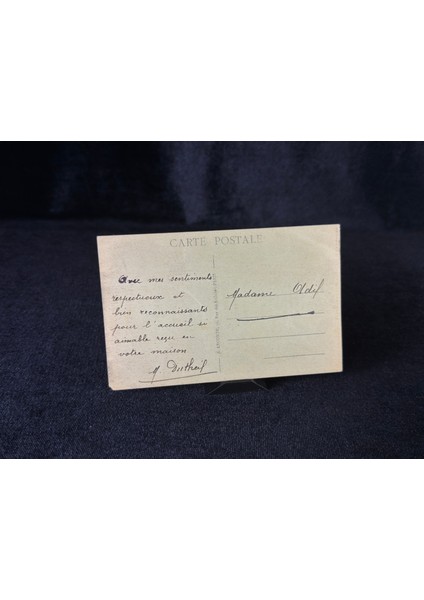 CARTE POSTALE
Avec mes sentiments
respectueux et
bien reconnaissants
pour l'accueil si
aimable reçu en
votre maison
M Dutheil
Madame